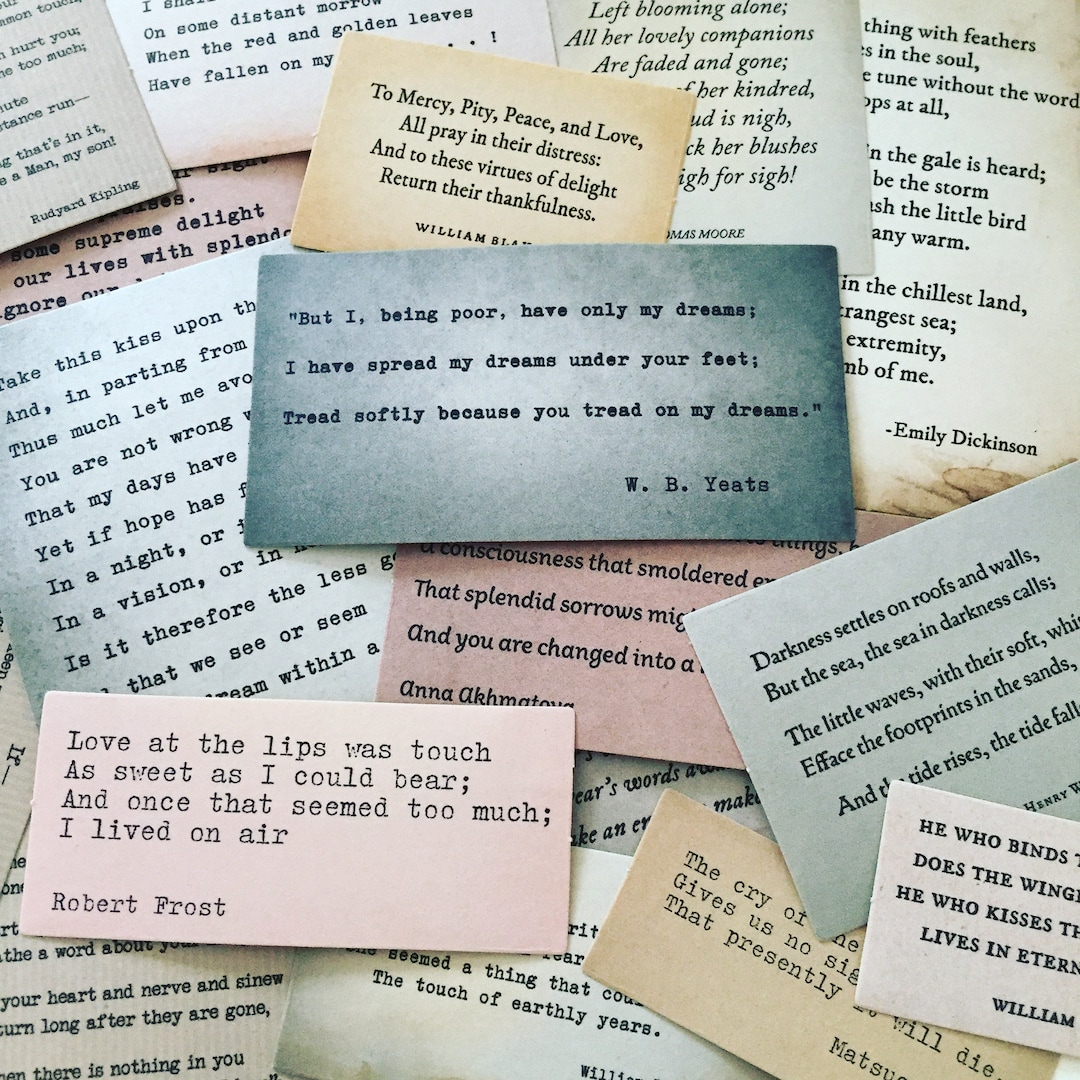 mmon touch,
hurt you;
too much;
stance run—
that's in it,
a Man, my son!
Rudyard Kipling
On some distant morrow
When the red and golden leaves
Have fallen on my . . !
To Mercy, Pity, Peace, and Love,
All pray in their distress:
And to these virtues of delight
Return their thankfulness.
WILLIAM BLA
Left blooming alone;
All her lovely companions
Are faded and gone;
of her kindred,
ud is nigh,
ck her blushes
igh for sigh!
OMAS MOORE
thing with feathers
s in the soul,
e tune without the word
ops at all,
n the gale is heard;
be the storm
ash the little bird
any warm.
in the chillest land,
trangest sea;
extremity,
mb of me.
-Emily Dickinson
some supreme delight
our lives with splend
gnore our
Take this kiss upon th
And, in parting from
Thus much let me avo
You are not wrong
That my days have
Yet if hope has f
In a night, or i
In a vision, or in
Is it therefore the less g
that we see or seem
ream within a
"But I, being poor, have only my dreams;
I have spread my dreams under your feet;
Tread softly because you tread on my dreams."
W. B. Yeats
things,
a consciousness that smoldered
That splendid sorrows mig
And you are changed into a
Anna Akhmatova
Darkness settles on roofs and walls,
But the sea, the sea in darkness calls;
The little waves, with their soft, whi
Efface the footprints in the sands,
And the tide rises, the tide fall
HENRY W
Love at the lips was touch
As sweet as I could bear;
And once that seemed too much;
I lived on air
Robert Frost
ear's words
make
ke an
The cry of the
Gives us no sig
That presently it will die.
Matsuo
HE WHO BINDS T
DOES THE WING
HE WHO KISSES TH
LIVES IN ETERN
WILLIAM
If—
the a word about your
your heart and nerve and sinew
turn long after they are gone,
en there is nothing in you
She seemed a thing that cou
The touch of earthly years.
William